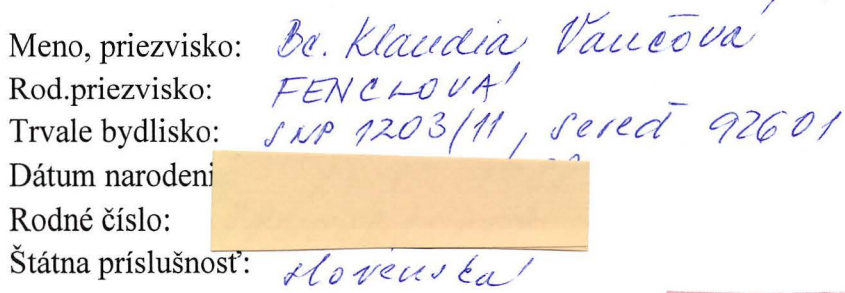 Meno, priezvisko: Bc. Klaudia Vančová
Rod.priezvisko: FENCLOVÁ
Trvale bydlisko: SNP 1203/11, Sereď 92601
Dátum narodeni
Rodné číslo:
Štátna príslušnosť: slovenská